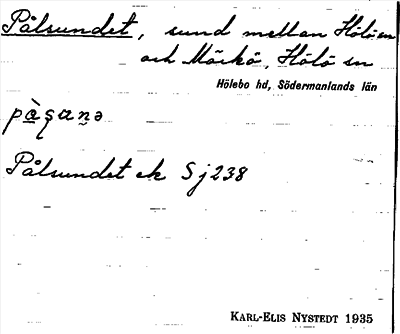 Pålsundet, sund mellan Hölö sn
och Mörkö, Hölö sn
Hölebo hd, Södermanlands län
Pålsundet ek Sj238
KARL-ELIS NYSTEDT 1935